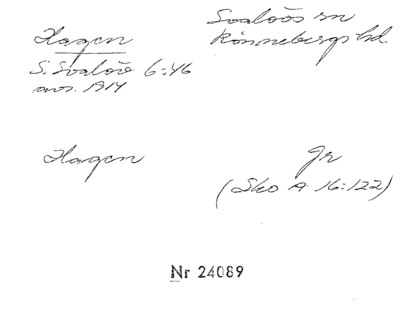 Hagen
Svalövs sn
Rönnebergs hd.
S. Svalöv 6:46
avs. 1914
Hagen
Gr
(Sko A. 16:122)
Nr 24089